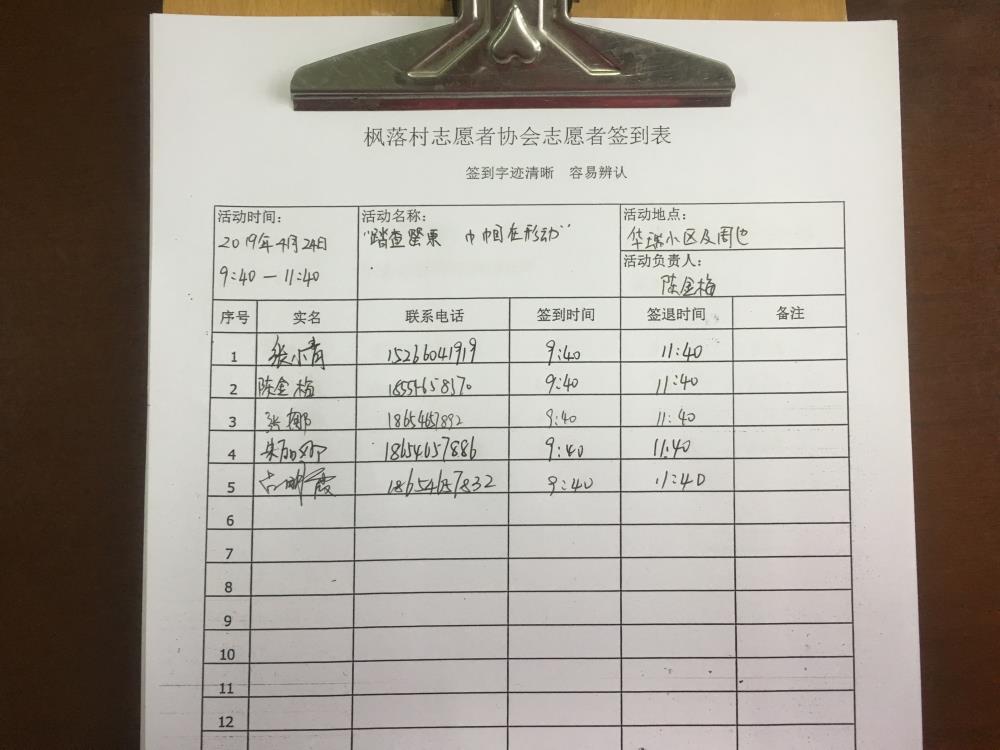 枫落村志愿者协会志愿者签到表
签到字迹清晰 容易辨认
活动时间: 活动名称: 活动地点:
2019年4月24日 "踏查罂粟 巾帼在形动" 华瑞小区及周边
活动负责人:
9:40 — 11:40 陈金梅
序号 实名 联系电话 签到时间 签退时间 备注
1 张小青 15266041919 9:40 11:40
2 陈金梅 9:40 11:40
3 张娜 18654657892 9:40 11:40
4 朱丽娜 18654657886 9:40 11:40
5 霞 18654657832 9:40 11:40
6
7
8
9
10
11
12